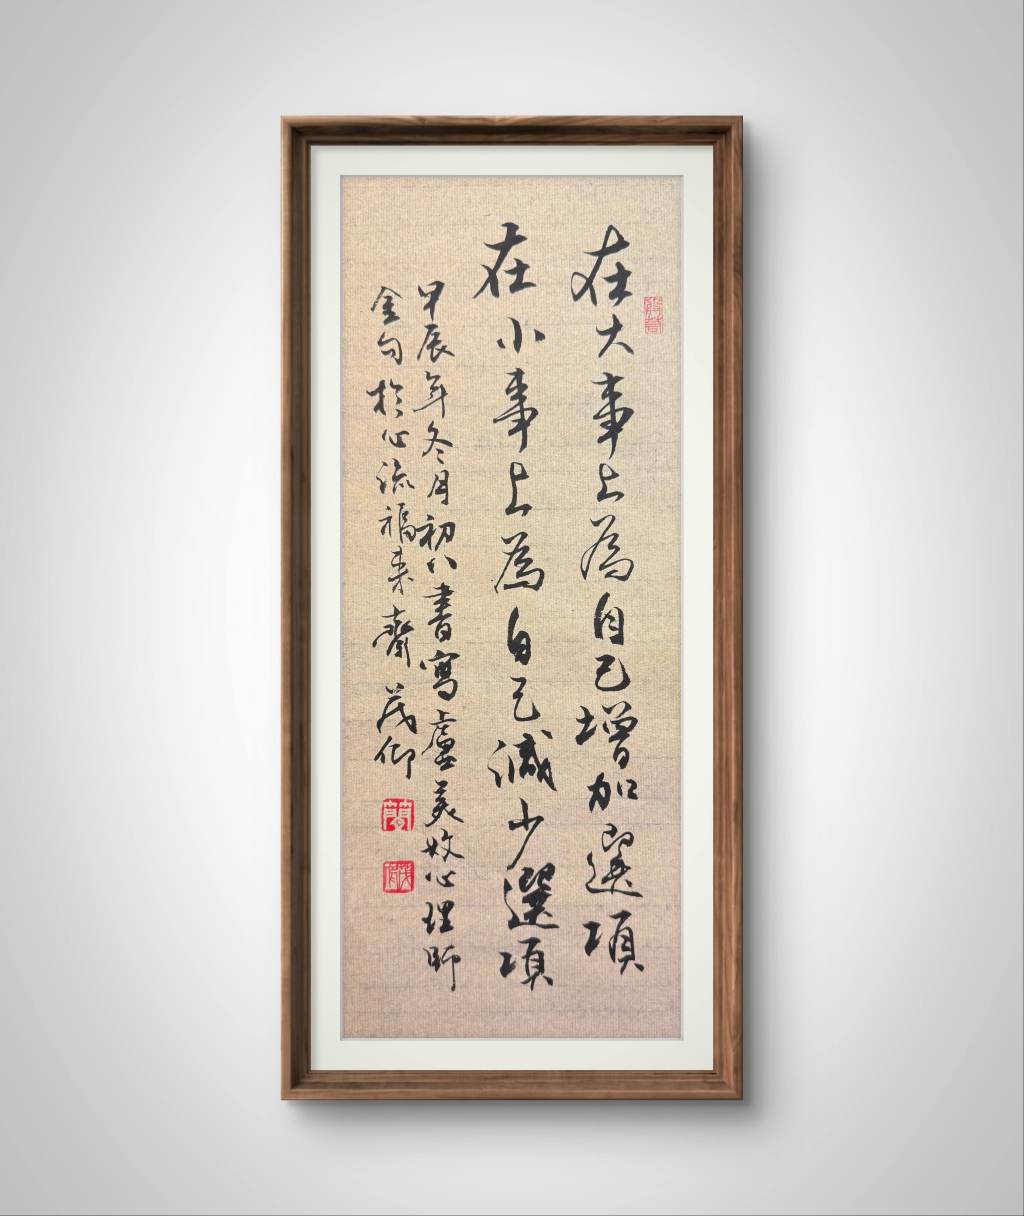 在大事上為自己增加選項
在小事上為自己減少選項
甲辰年冬月初八書寫盧美妏心理師
金句於心流福來齋 茂卿